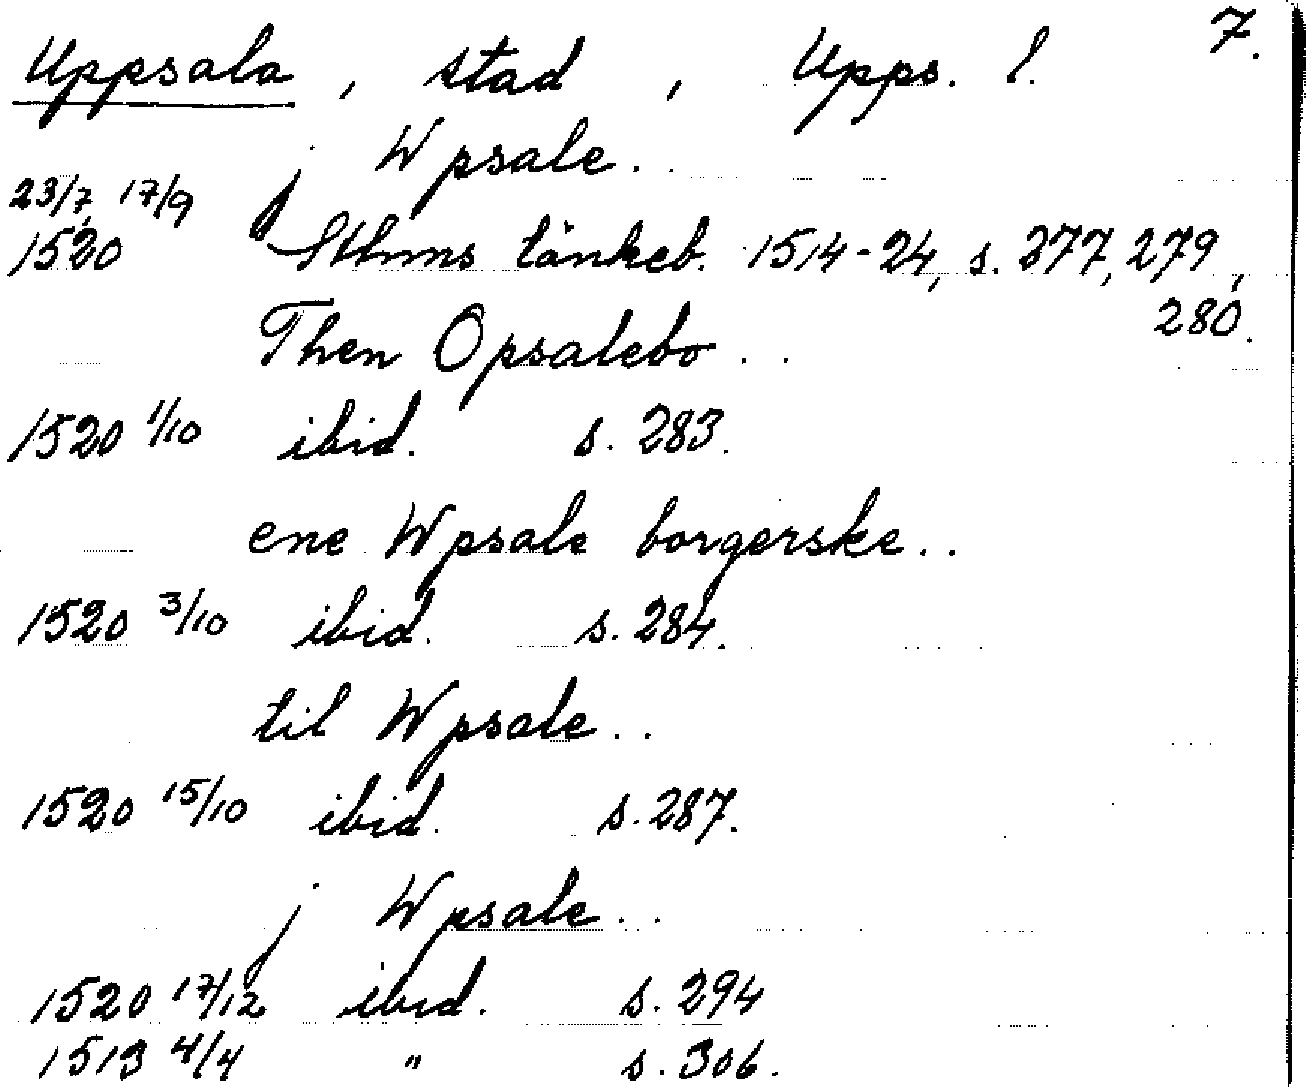 Uppsala, stad, Upps. l. 7.
j Wpsale..
23/7, 17/9
1520 Sthms tänkeb. 1514-24, s. 277, 279,
280.
Then Opsalebo..
1520 1/10 ibid. s. 283.
ene Wpsale borgerske..
1520 3/10 ibid. s. 284.
til Wpsale..
1520 15/10 ibid. s. 287.
j Wpsale..
1520 17/12 ibid. s. 294
1513 4/4 " s. 306.